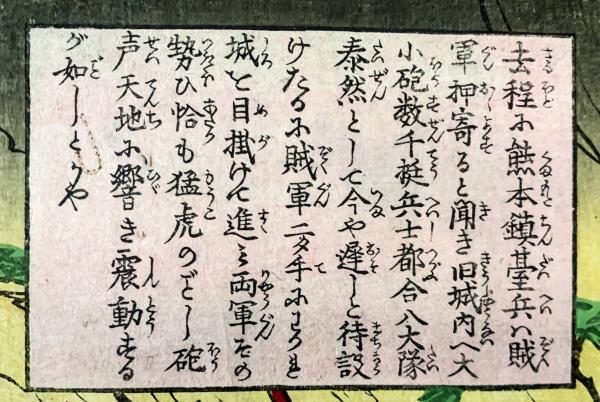 去程に熊本鎮臺兵ハ賊
軍押寄ると聞き旧城内へ大
小砲数千挺兵士都合八大隊
泰然として今や遅しと待設
けたるに賊軍二タ手にわかれ
城を目掛けて進ミ両軍その
勢ひ恰も猛虎のごとし砲
声天地に響き震動する
が如しとうや